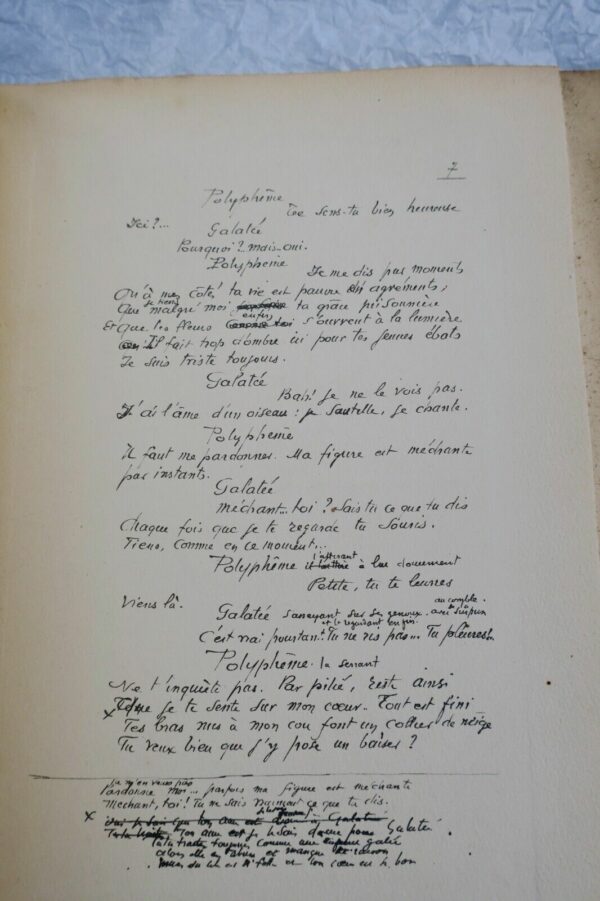 7
Polyphême
Te sens-tu bien heureuse
Ici ?...
Galatée
Pourquoi ?.. mais oui.
Polypheme
Je me dis par moments
Qu'à mes côtés ta vie est pauvre en agréments,
Que malgré moi je tiens ta grâce prisonnière
Et que les fleurs enfin s'ouvrent à la lumière
Il fait trop d'ombre ici pour tes jeunes ébats
Je suis triste toujours.
Galatée
Bah! je ne le vois pas.
J'ai l'âme d'un oiseau : je sautille, je chante.
Polyphême
Il faut me pardonner. Ma figure est méchante
par instants.
Galatée
méchant.. toi ? Sais tu ce que tu dis
Chaque fois que je te regarde tu souris.
Tiens, comme en ce moment...
Polyphême l'attirant à lui doucement
Petite, tu te leurres
Viens là.
Galatée s'asseyant sur ses genoux. et le regardant enfin. avec surprise
C'est vrai pourtant! Tu ne ris pas... Tu pleures
Polyphême. la serrant
Ne t'inquiète pas. Par pitié, reste ainsi
Que je te sente sur mon cœur.. Tout est fini
x Tes bras nus à mon cou font un collier de neige
Tu veux bien que j'y pose un baiser ?
Pardonne moi... parfois ma figure est méchante
Mechant, toi! Tu ne sais vraiment ce que tu dis.
x
Ton ame est je le sais Galatée
toujours comme une
et manque de raison
et ton cœur est si bon